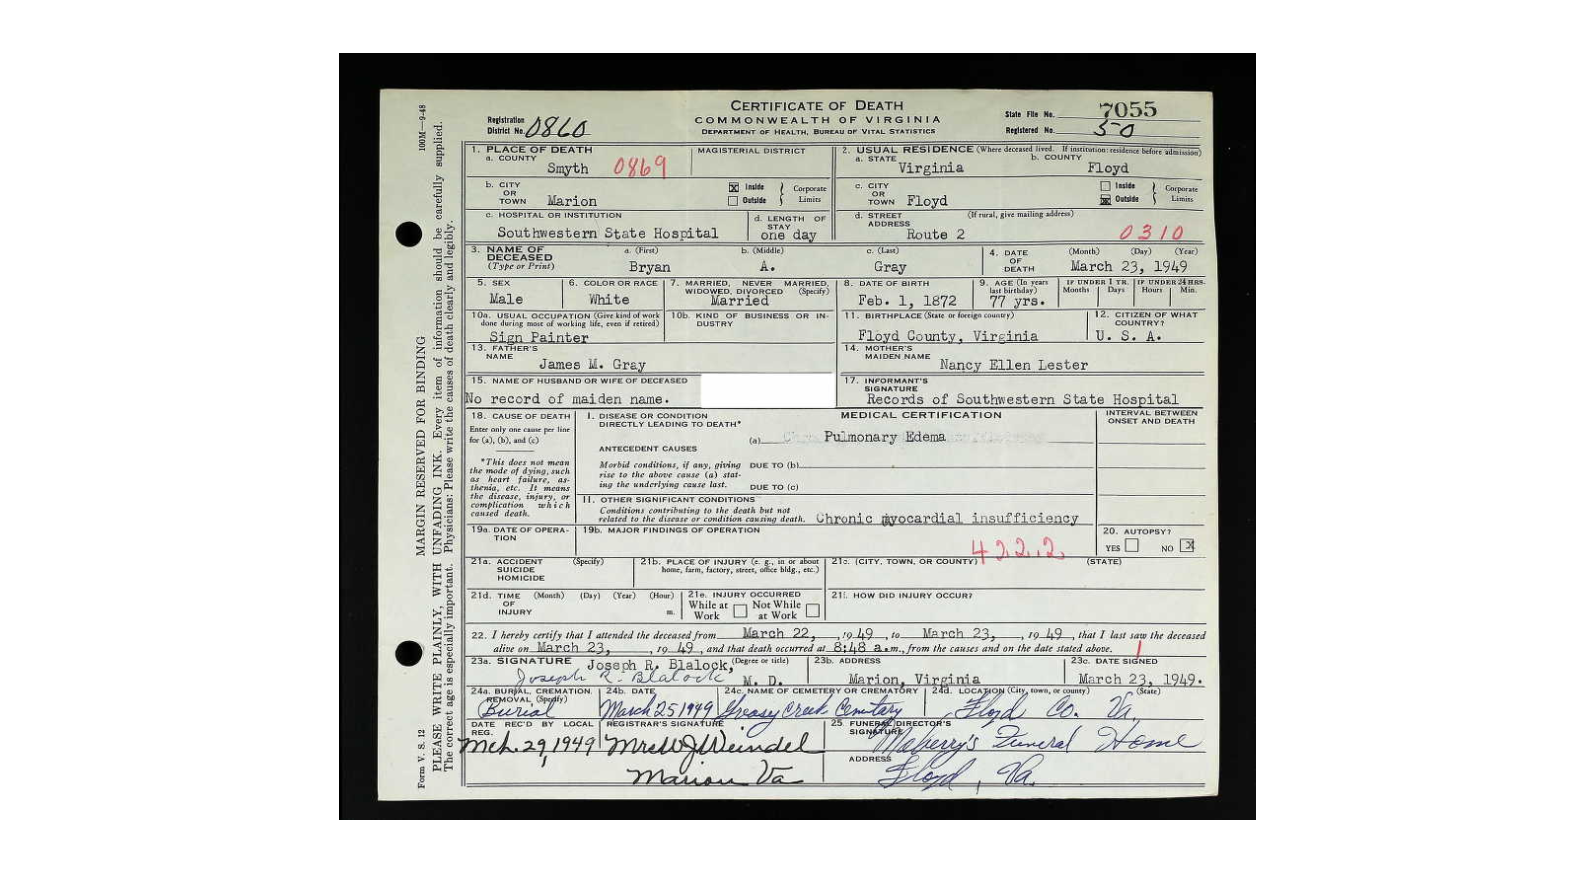 CERTIFICATE OF DEATH
COMMONWEALTH OF VIRGINIA
DEPARTMENT OF HEALTH, BUREAU OF VITAL STATISTICS
Registration District No. 0860
State File No. 7055
Registered No. 50
100M—9-48
MARGIN RESERVED FOR BINDING
PLEASE WRITE PLAINLY, WITH UNFADING INK. Every item of information should be carefully supplied.
The correct age is especially important. Physicians: Please write the causes of death clearly and legibly.
Form V. S. 12
1. PLACE OF DEATH
a. COUNTY Smyth 0869
MAGISTERIAL DISTRICT
2. USUAL RESIDENCE (Where deceased lived. If institution: residence before admission)
a. STATE Virginia b. COUNTY Floyd
b. CITY OR TOWN Marion
Inside Outside Corporate Limits
c. CITY OR TOWN Floyd
Inside Outside Corporate Limits
c. HOSPITAL OR INSTITUTION Southwestern State Hospital
d. LENGTH OF STAY one day
d. STREET ADDRESS (If rural, give mailing address) Route 2 0310
3. NAME OF DECEASED (Type or Print)
a. (First) Bryan b. (Middle) A. c. (Last) Gray
4. DATE OF DEATH (Month) (Day) (Year) March 23, 1949
5. SEX Male
6. COLOR OR RACE White
7. MARRIED, NEVER MARRIED, WIDOWED, DIVORCED (Specify) Married
8. DATE OF BIRTH Feb. 1, 1872
9. AGE (In years last birthday) 77 yrs.
IF UNDER 1 YR. Months Days
IF UNDER 24 HRS. Hours Min.
10a. USUAL OCCUPATION (Give kind of work done during most of working life, even if retired) Sign Painter
10b. KIND OF BUSINESS OR INDUSTRY
11. BIRTHPLACE (State or foreign country) Floyd County, Virginia
12. CITIZEN OF WHAT COUNTRY? U. S. A.
13. FATHER'S NAME James M. Gray
14. MOTHER'S MAIDEN NAME Nancy Ellen Lester
15. NAME OF HUSBAND OR WIFE OF DECEASED No record of maiden name.
17. INFORMANT'S SIGNATURE Records of Southwestern State Hospital
18. CAUSE OF DEATH
Enter only one cause per line for (a), (b), and (c)
*This does not mean the mode of dying, such as heart failure, asthenia, etc. It means the disease, injury, or complication which caused death.
MEDICAL CERTIFICATION
INTERVAL BETWEEN ONSET AND DEATH
I. DISEASE OR CONDITION DIRECTLY LEADING TO DEATH*
(a) Pulmonary Edema
ANTECEDENT CAUSES
Morbid conditions, if any, giving rise to the above cause (a) stating the underlying cause last.
DUE TO (b)
DUE TO (c)
II. OTHER SIGNIFICANT CONDITIONS
Conditions contributing to the death but not related to the disease or condition causing death. Chronic myocardial insufficiency
19a. DATE OF OPERATION
19b. MAJOR FINDINGS OF OPERATION
4222
20. AUTOPSY? YES NO
21a. ACCIDENT SUICIDE HOMICIDE (Specify)
21b. PLACE OF INJURY (e. g., in or about home, farm, factory, street, office bldg., etc.)
21c. (CITY, TOWN, OR COUNTY) (STATE)
21d. TIME OF INJURY (Month) (Day) (Year) (Hour) m.
21e. INJURY OCCURRED While at Work Not While at Work
21f. HOW DID INJURY OCCUR?
22. I hereby certify that I attended the deceased from March 22, , 19 49 , to March 23, , 19 49 , that I last saw the deceased
alive on March 23, , 19 49 , and that death occurred at 8:48 a.m., from the causes and on the date stated above.
23a. SIGNATURE Joseph R. Blalock, (Degree or title) M. D.
Joseph R. Blalock
23b. ADDRESS Marion, Virginia
23c. DATE SIGNED March 23, 1949.
24a. BURIAL, CREMATION, REMOVAL (Specify) Burial
24b. DATE March 25 1949
24c. NAME OF CEMETERY OR CREMATORY Greasy Creek Cemetary
24d. LOCATION (City, town, or county) (State) Floyd Co. Va.
DATE REC'D BY LOCAL REG. Mch. 29, 1949
REGISTRAR'S SIGNATURE Mrs W J Weindel
Marion Va
25. FUNERAL DIRECTOR'S SIGNATURE Maberry's Funeral Home
ADDRESS Floyd, Va.